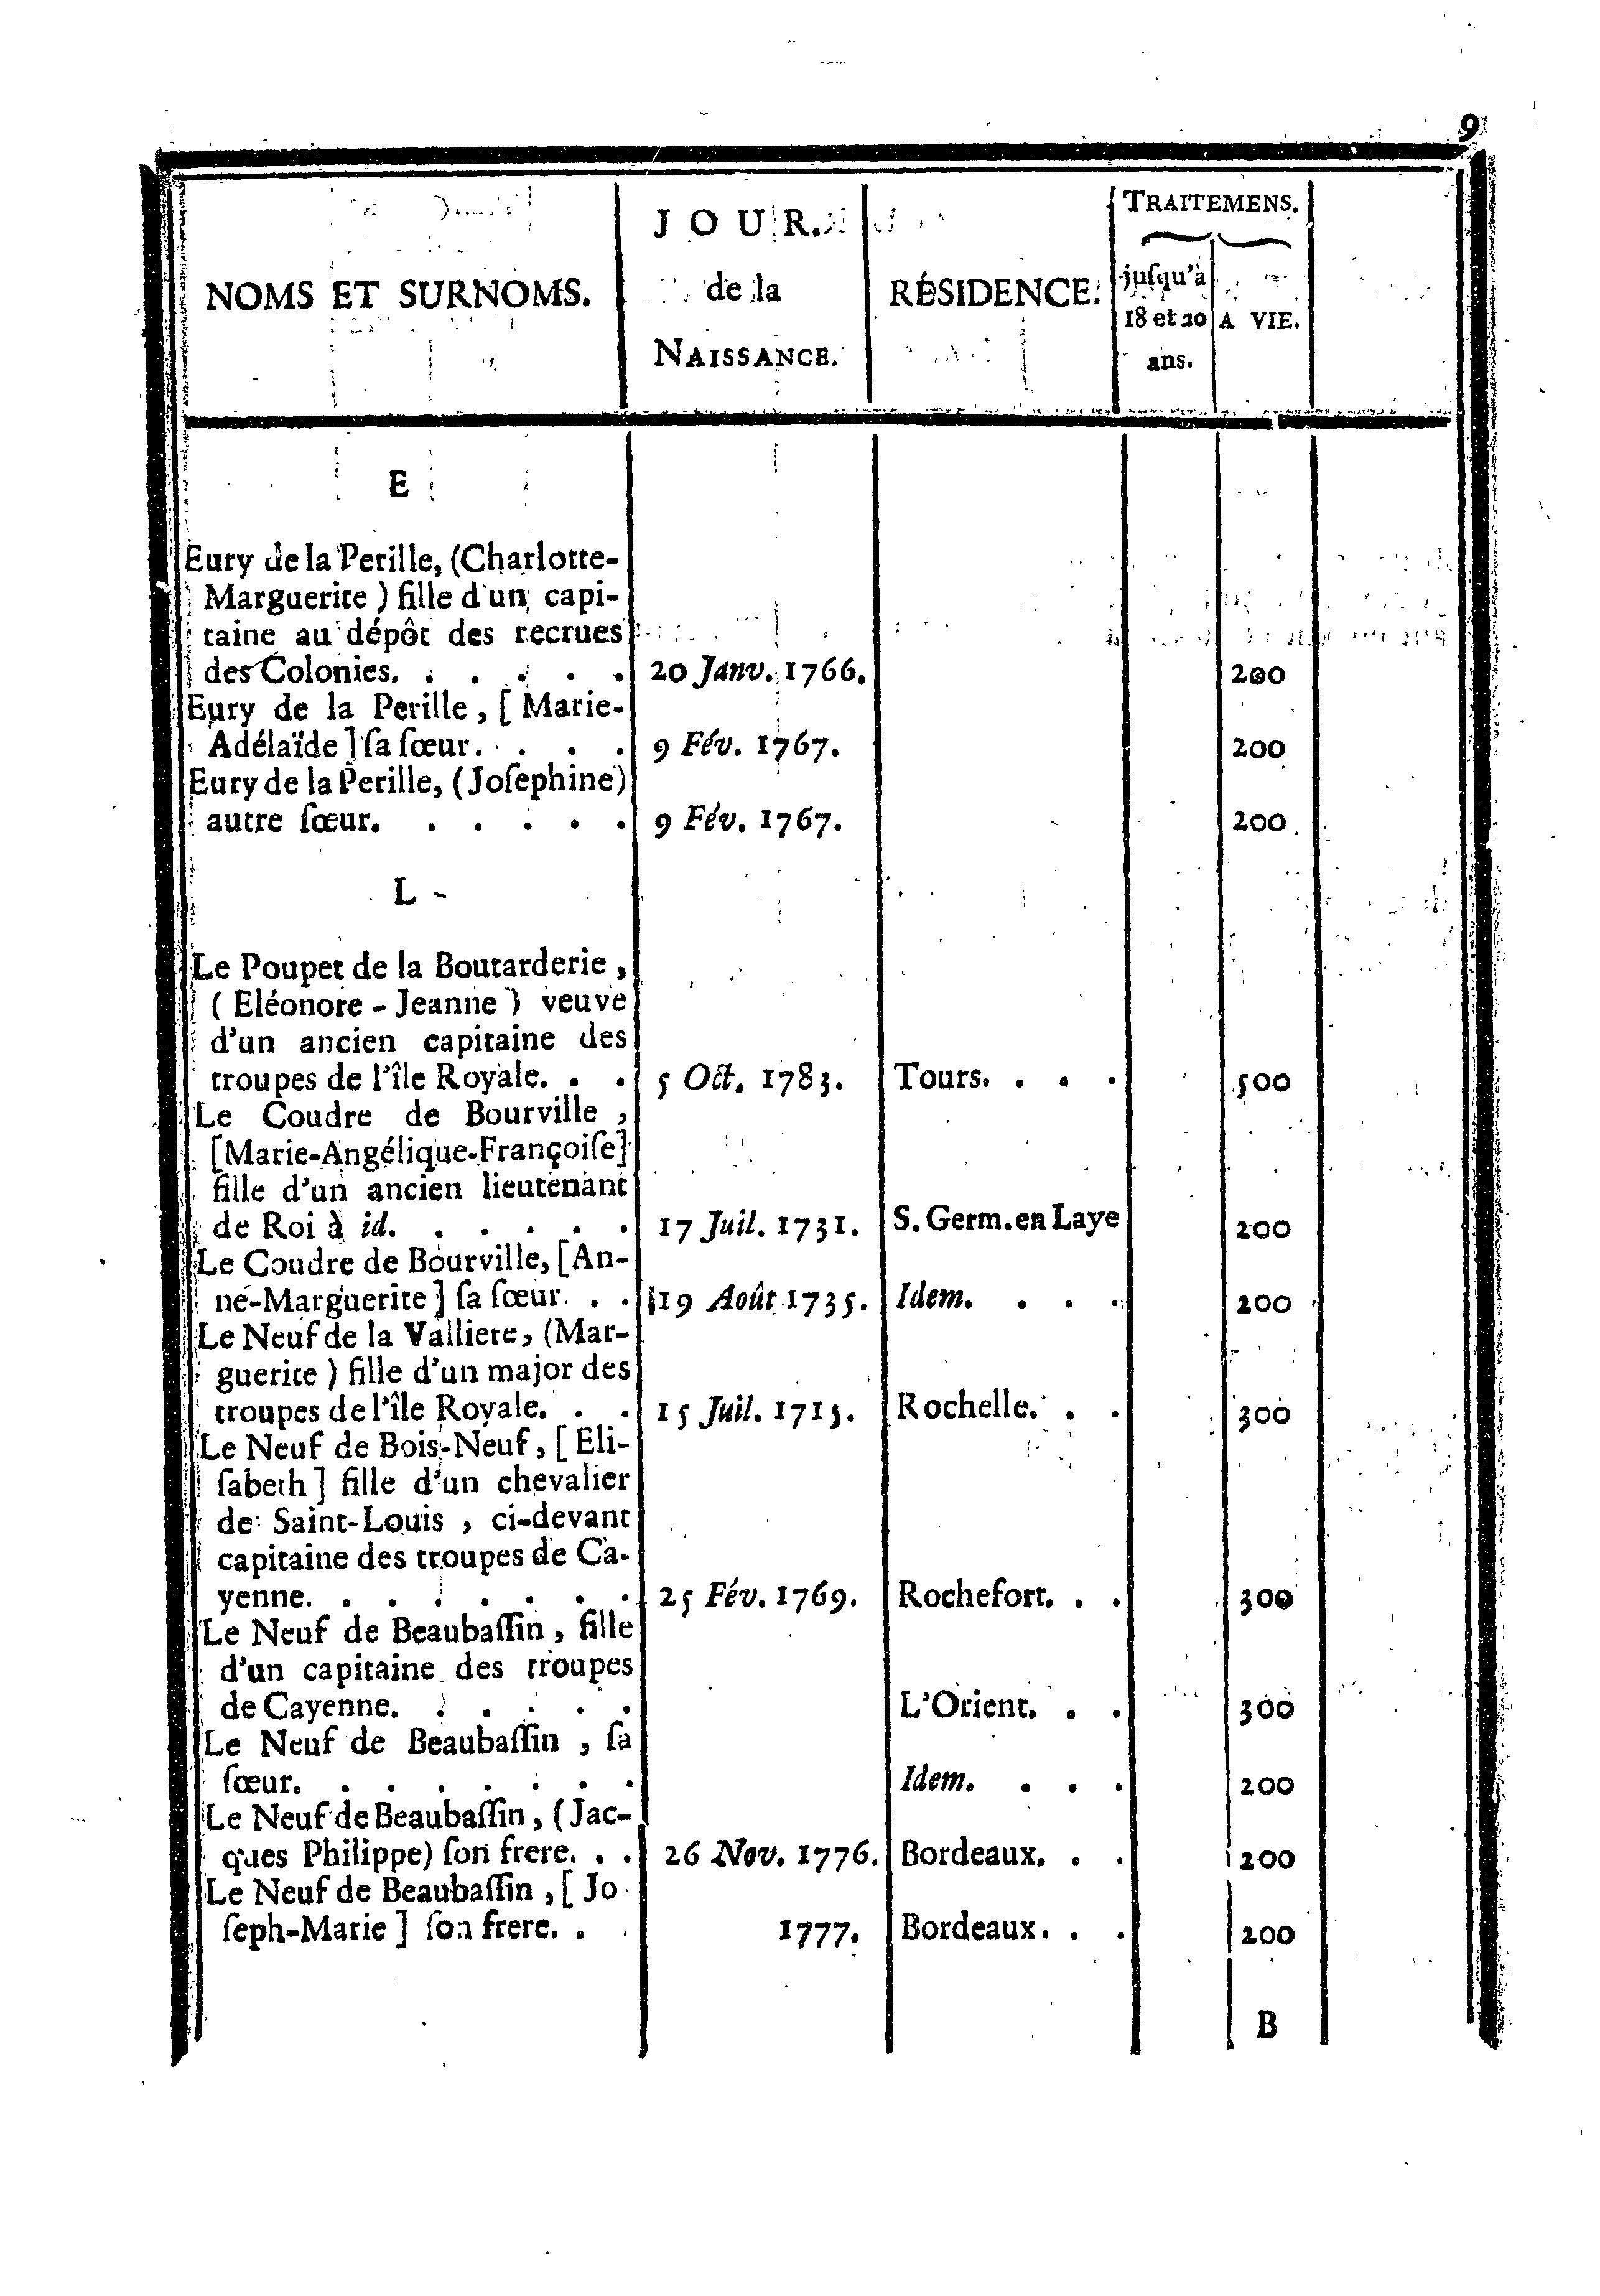 9
NOMS ET SURNOMS.
JOUR.
de la
NAISSANCE.
RÉSIDENCE.
TRAITEMENS.
juſqu'à
18 et 20
ans.
A VIE.
E
Eury de la Perille, (Charlotte-
Marguerite) fille d'un capi-
taine au dépôt des recrues
des Colonies. . . . . . 20 Janv. 1766. 200
Eury de la Perille, [Marie-
Adélaïde] ſa ſœur. . . . 9 Fév. 1767. 200
Eury de la Perille, (Joſephine)
autre ſœur. . . . . . 9 Fév. 1767. 200
L
Le Poupet de la Boutarderie,
(Eléonore-Jeanne) veuve
d'un ancien capitaine des
troupes de l'île Royale. . . 5 Oct. 1783. Tours. . . . 500
Le Coudre de Bourville,
[Marie-Angélique-Françoiſe]
fille d'un ancien lieutenant
de Roi à id. . . . . . 17 Juil. 1731. S. Germ. en Laye 200
Le Coudre de Bourville, [An-
ne-Marguerite] ſa ſœur. . . 19 Août 1735. Idem. . . . 200
Le Neuf de la Valliere, (Mar-
guerite) fille d'un major des
troupes de l'île Royale. . . 15 Juil. 1715. Rochelle. . . 300
Le Neuf de Bois-Neuf, [Eli-
ſabeth] fille d'un chevalier
de Saint-Louis, ci-devant
capitaine des troupes de Ca-
yenne. . . . . . . . 25 Fév. 1769. Rochefort. . . 300
Le Neuf de Beaubaſſin, fille
d'un capitaine des troupes
de Cayenne. . . . . . L'Orient. . . 300
Le Neuf de Beaubaſſin, ſa
ſœur. . . . . . . . Idem. . . . 200
Le Neuf de Beaubaſſin, (Jac-
ques Philippe) ſon frere. . . 26 Nov. 1776. Bordeaux. . . 200
Le Neuf de Beaubaſſin, [Jo
ſeph-Marie] ſon frere. . . 1777. Bordeaux. . . 200
B